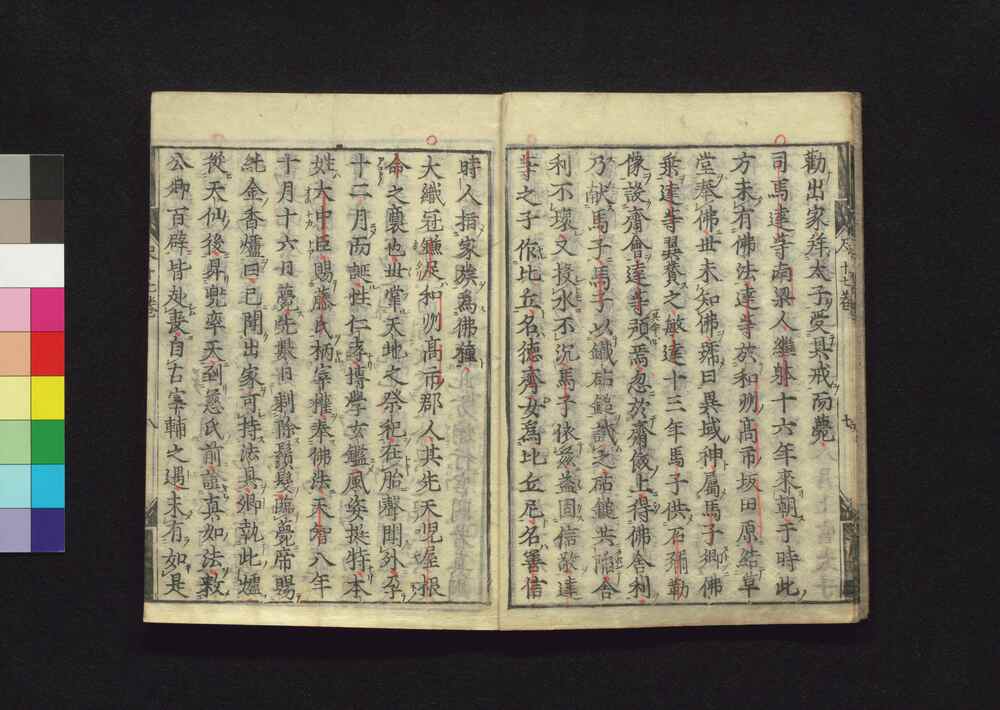 勸出家并太子受具戒而薨
司馬達等南梁人繼體十六年來朝于時此
方未有佛法達等於和州高市坂田原結草
堂奉佛世未知佛號曰異域神屬馬子鄕佛
乘達等翼贊之敏達十三年馬子供石彌勒
像設齋會達等預焉忽於齋飯上得佛舍利
乃獻馬子馬子以鐵砧鎚試之砧鎚共陷舍
利不壞又投水不沉馬子依茲益固信敬達
等之子作比丘名德齊女爲比丘尼名善信
時人指家族爲佛種
大織冠鎌足和州高市郡人其先天兒屋根
命之裔也世掌天地之祭祀在胎聲聞外孕
十二月而誕性仁孝博學玄鑑風姿挺特本
姓大中臣賜藤氏柄宰攉奉佛法天智八年
十月十六日薨先數日剃除鬚髮臨薨席賜
純金香爐曰已聞出家可持法具卿執此爐
從天仙後昇兜率天到慈氏前證真如法敕
公卿百辟皆赴喪自古宰輔之遇未有如是